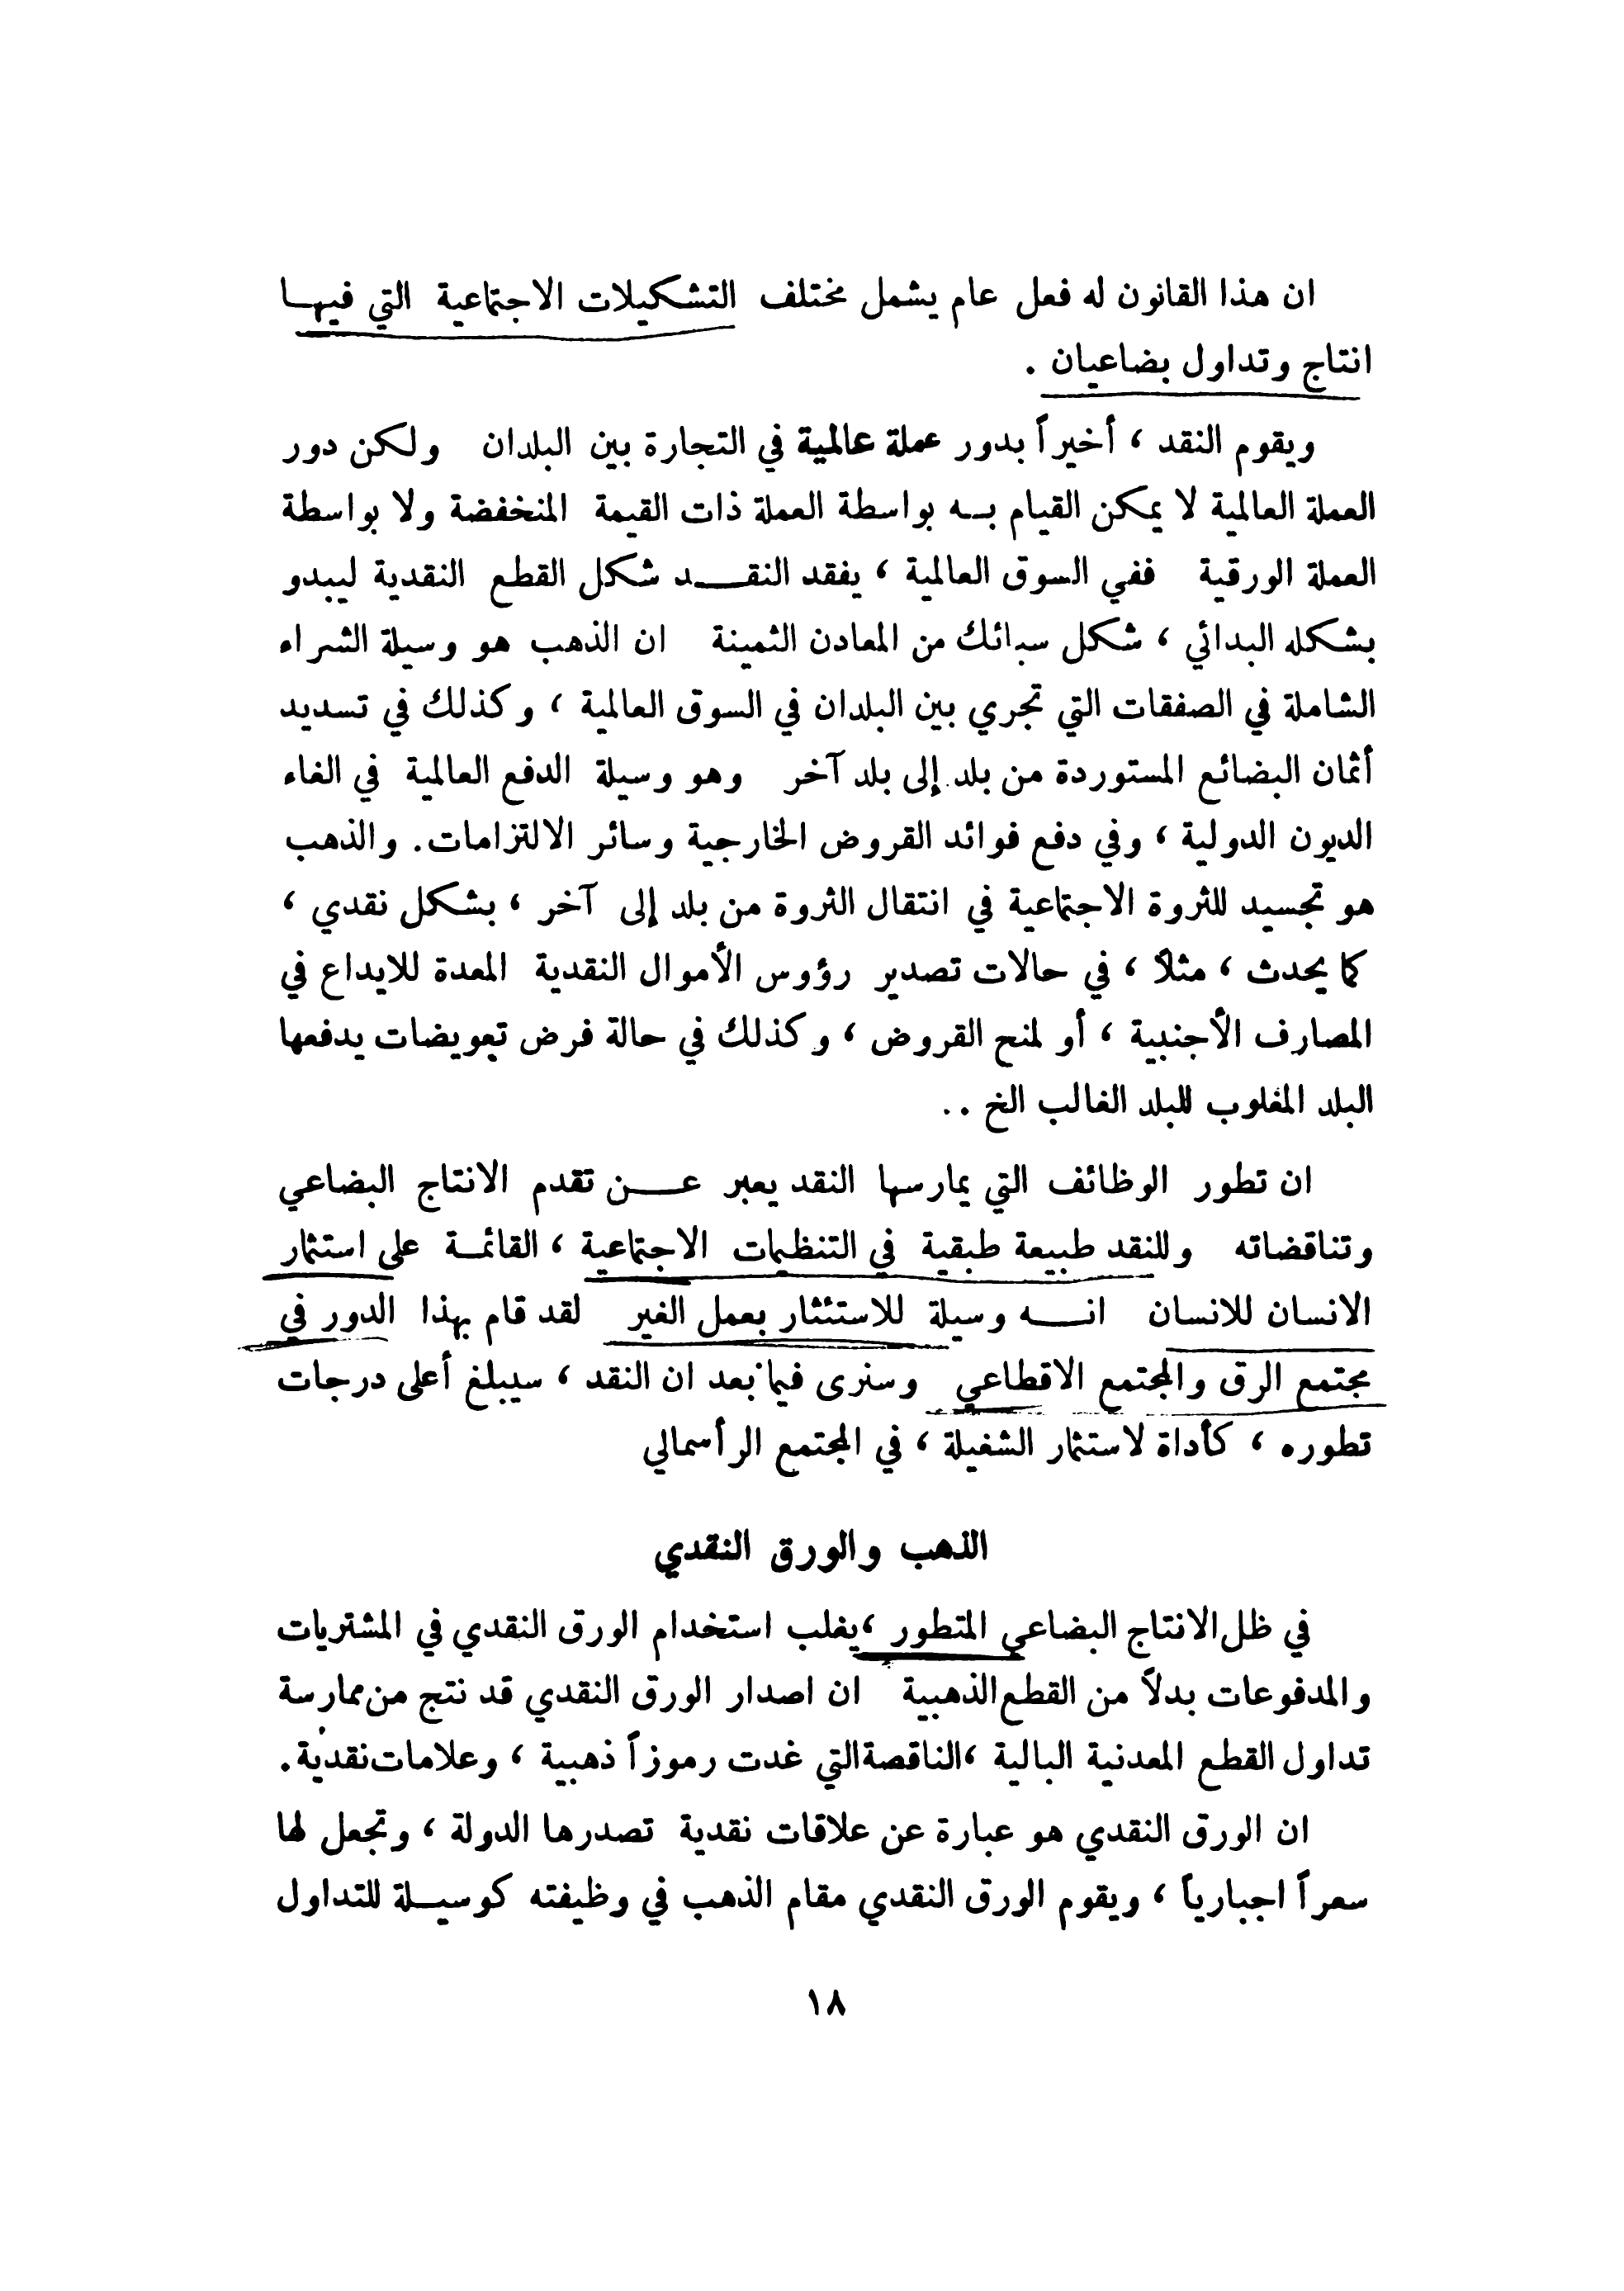 ان هذا القانون له فعل عام يشمل مختلف التشكيلات الاجتماعية التي فيهـا
انتاج وتداول بضاعيان .
ويقوم النقد ، أخيراً بدور عملة عالمية في التجارة بين البلدان ولكن دور
العملة العالمية لا يمكن القيام بـه بواسطة العملة ذات القيمة المنخفضة ولا بواسطة
العملة الورقية ففي السوق العالمية ، يفقد النقـــد شكل القطع النقدية ليبدو
بشكله البدائي ، شكل سبائك من المعادن الثمينة ان الذهب هو وسيلة الشراء
الشاملة في الصفقات التي تجري بين البلدان في السوق العالمية ، وكذلك في تسديد
أثمان البضائع المستوردة من بلد إلى بلد آخر وهو وسيلة الدفع العالمية في الغاء
الديون الدولية ، وفي دفع فوائد القروض الخارجية وسائر الالتزامات. والذهب
هو تجسيد للثروة الاجتماعية في انتقال الثروة من بلد إلى آخر ، بشكل نقدي ،
كما يحدث ، مثلاً ، في حالات تصدير رؤوس الأموال النقدية المعدة للايداع في
المصارف الأجنبية ، أو لمنح القروض ، وكذلك في حالة فرض تعويضات يدفعها
البلد المغلوب للبلد الغالب الخ ..
ان تطور الوظائف التي يمارسها النقد يعبر عـــن تقدم الانتاج البضاعي
وتناقضاته وللنقد طبيعة طبقية في التنظيمات الاجتماعية ، القائمـة على استثمار
الانسان للانسان انـــه وسيلة للاستئثار بعمل الغير لقد قام بهذا الدور في
مجتمع الرق والمجتمع الاقطاعي وسنرى فيما بعد ان النقد ، سيبلغ أعلى درجات
تطوره ، كأداة لاستثمار الشغيلة ، في المجتمع الرأسمالي
الذهب والورق النقدي
في ظل الانتاج البضاعي المتطور ،يغلب استخدام الورق النقدي في المشتريات
والمدفوعات بدلاً من القطع الذهبية ان اصدار الورق النقدي قد نتج من ممارسة
تداول القطع المعدنية البالية ،الناقصة التي غدت رموزاً ذهبية ، وعلامات نقدية.
ان الورق النقدي هو عبارة عن علاقات نقدية تصدرها الدولة ، وتجعل لها
سعراً اجبارياً ، ويقوم الورق النقدي مقام الذهب في وظيفته كوسيـلة للتداول
١٨